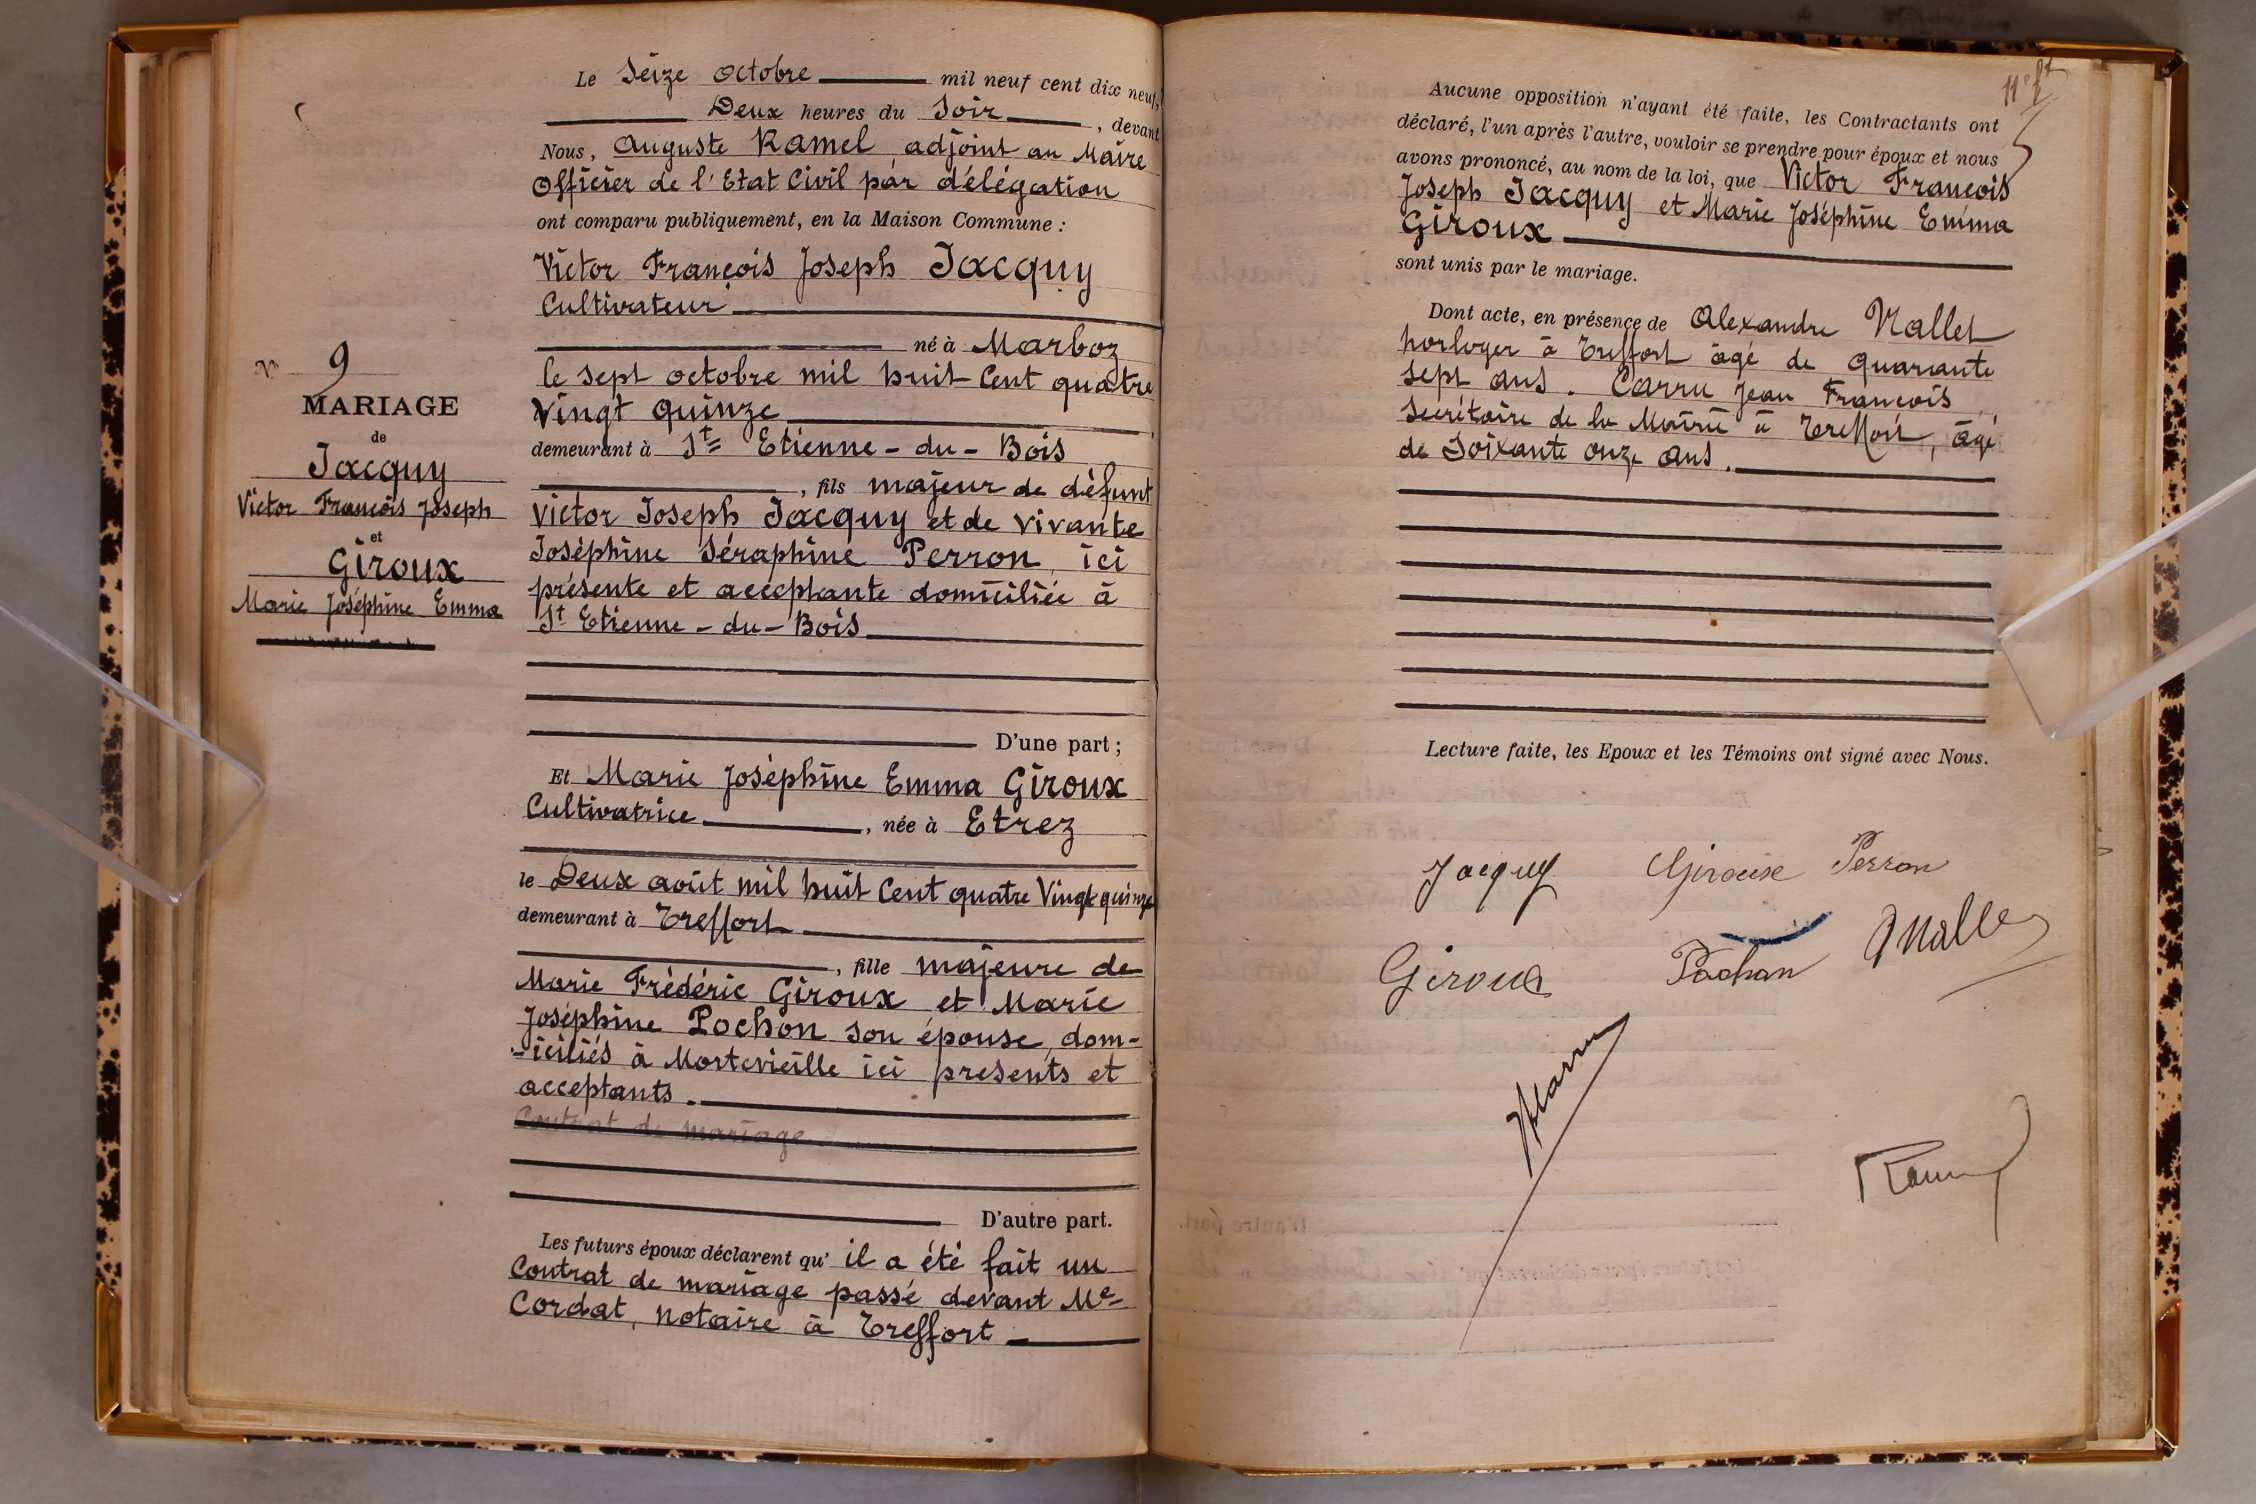 Le Seize octobre mil neuf cent dix neuf,
Deux heures du Soir, devant
Nous, Auguste Ramel, adjoint au Maire
Officier de l'Etat Civil par délégation
ont comparu publiquement, en la Maison Commune :
Victor François Joseph Jacquy
Cultivateur
né à Marboz
le sept octobre mil huit cent quatre
vingt quinze
demeurant à St Etienne-du-Bois
, fils majeur de défunt
Victor Joseph Jacquy et de vivante
Joséphine Séraphine Perron, ici
présente et acceptante domiciliée à
St Etienne-du-Bois
D'une part ;
Et Marie Joséphine Emma Giroux
Cultivatrice, née à Etrez
le Deux août mil huit Cent quatre Vingt quinze
demeurant à Treffort
, fille majeure de
Marie Frédéric Giroux et Marie
Joséphine Pochon son épouse, dom-
-iciliés à Mortevieille ici présents et
acceptants.
Contrat de mariage
D'autre part.
Les futurs époux déclarent qu'il a été fait un
Contrat de mariage passé devant Me
Cordat, notaire à Treffort
N° 9
MARIAGE
de
Jacquy
Victor François Joseph
et
Giroux
Marie Joséphine Emma
Aucune opposition n'ayant été faite, les Contractants ont
déclaré, l'un après l'autre, vouloir se prendre pour époux et nous
avons prononcé, au nom de la loi, que Victor François
Joseph Jacquy et Marie Joséphine Emma
Giroux
sont unis par le mariage.
Dont acte, en présence de Alexandre Nallet
horloger à Treffort âgé de quarante
sept ans. Carru Jean François
Secrétaire de la Mairie à Treffort, âgé
de Soixante onze ans.
Lecture faite, les Epoux et les Témoins ont signé avec Nous.
Jacquy Giroux Perron
Giroux Pochon Nallet
Ramel